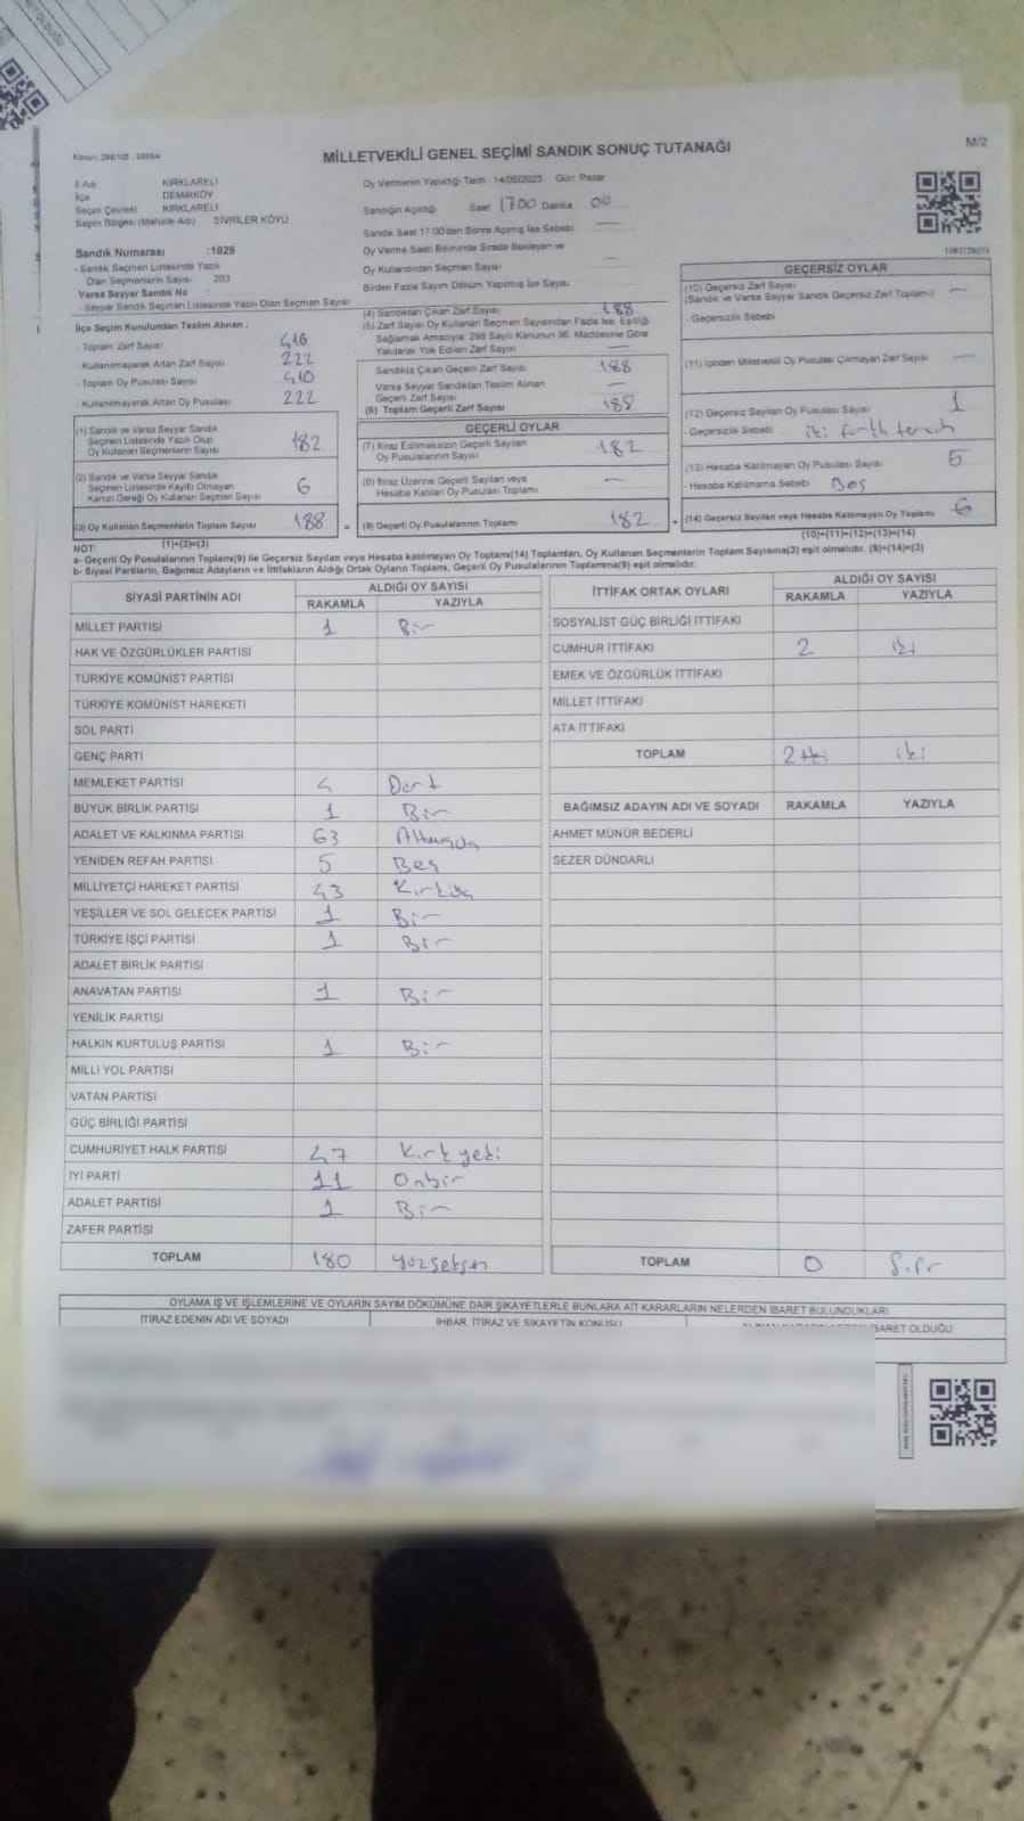 MİLLETVEKİLİ GENEL SEÇİMİ SANDIK SONUÇ TUTANAĞI
M/2
İl Adı KIRKLARELİ
İlçe DEMİRKÖY
Seçim Çevresi KIRKLARELİ
Seçim Bölgesi (Mahalle Adı) SİVRİLER KÖYÜ
Oy Vermenin Yapıldığı Tarih : 14/05/2023 Gün: Pazar
Sandığın Açıldığı Saat 1700 Dakika 00
Sandık Saat 17:00'dan Sonra Açılmış İse Sebebi
Oy Verme Saati Bitiminde Sırada Bekleyen ve
Oy Kullandırılan Seçmen Sayısı
Birden Fazla Sayım Döküm Yapılmış İse Sayısı
Sandık Numarası :1025
- Sandık Seçmen Listesinde Yazılı
Olan Seçmenlerin Sayısı 203
Varsa Seyyar Sandık No
- Seyyar Sandık Seçmen Listesinde Yazılı Olan Seçmen Sayısı
İlçe Seçim Kurulundan Teslim Alınan ;
- Toplam Zarf Sayısı
- Kullanılmayarak Artan Zarf Sayısı 222
- Toplam Oy Pusulası Sayısı
- Kullanılmayarak Artan Oy Pusulası 222
(1) Sandık ve Varsa Seyyar Sandık
Seçmen Listesinde Yazılı Olup
Oy Kullanan Seçmenlerin Sayısı 182
(2) Sandık ve Varsa Seyyar Sandık
Seçmen Listesinde Kayıtlı Olmayan
Kanun Gereği Oy Kullanan Seçmen Sayısı 6
(3) Oy Kullanan Seçmenlerin Toplam Sayısı 188
(1)+(2)=(3)
(4) Sandıktan Çıkan Zarf Sayısı 188
(5) Zarf Sayısı Oy Kullanan Seçmen Sayısından Fazla İse, Eşitliği
Sağlamak Amacıyla; 298 Sayılı Kanunun 98. Maddesine Göre
Yakılarak Yok Edilen Zarf Sayısı
Sandıkta Çıkan Geçerli Zarf Sayısı 188
Varsa Seyyar Sandıktan Teslim Alınan
Geçerli Zarf Sayısı
(6) Toplam Geçerli Zarf Sayısı 188
GEÇERLİ OYLAR
(7) İtiraz Edilmeksizin Geçerli Sayılan
Oy Pusulalarının Sayısı 182
(8) İtiraz Üzerine Geçerli Sayılan veya
Hesaba Katılan Oy Pusulası Toplamı
(9) Geçerli Oy Pusulalarının Toplamı 182
GEÇERSİZ OYLAR
(10) Geçersiz Zarf Sayısı
(Sandık ve Varsa Seyyar Sandık Geçersiz Zarf Toplamı)
- Geçersizlik Sebebi
(11) İçinden Milletvekili Oy Pusulası Çıkmayan Zarf Sayısı
(12) Geçersiz Sayılan Oy Pusulası Sayısı 1
- Geçersizlik Sebebi iki
(13) Hesaba Katılmayan Oy Pusulası Sayısı 5
- Hesaba Katılmama Sebebi Boş
(14) Geçersiz Sayılan veya Hesaba Katılmayan Oy Toplamı 6
(10)+(11)+(12)+(13)=(14)
NOT:
a- Geçerli Oy Pusulalarının Toplamı(9) ile Geçersiz Sayılan veya Hesaba katılmayan Oy Toplamı(14) Toplamları, Oy Kullanan Seçmenlerin Toplam Sayısına(3) eşit olmalıdır. (9)+(14)=(3)
b- Siyasi Partilerin, Bağımsız Adayların ve İttifakların Aldığı Ortak Oyların Toplamı, Geçerli Oy Pusulalarının Toplamına(9) eşit olmalıdır.
SİYASİ PARTİNİN ADI ALDIĞI OY SAYISI
RAKAMLA YAZIYLA
MİLLET PARTİSİ 1 Bir
HAK VE ÖZGÜRLÜKLER PARTİSİ
TÜRKİYE KOMÜNİST PARTİSİ
TÜRKİYE KOMÜNİST HAREKETİ
SOL PARTİ
GENÇ PARTİ
MEMLEKET PARTİSİ 4 Dört
BÜYÜK BİRLİK PARTİSİ 1 Bir
ADALET VE KALKINMA PARTİSİ 63 Altmışüç
YENİDEN REFAH PARTİSİ 5 Beş
MİLLİYETÇİ HAREKET PARTİSİ 43 Kırküç
YEŞİLLER VE SOL GELECEK PARTİSİ 1 Bir
TÜRKİYE İŞÇİ PARTİSİ 1 Bir
ADALET BİRLİK PARTİSİ
ANAVATAN PARTİSİ 1 Bir
YENİLİK PARTİSİ
HALKIN KURTULUŞ PARTİSİ 1 Bir
MİLLİ YOL PARTİSİ
VATAN PARTİSİ
GÜÇ BİRLİĞİ PARTİSİ
CUMHURİYET HALK PARTİSİ 47 Kırkyedi
İYİ PARTİ 11 Onbir
ADALET PARTİSİ 1 Bir
ZAFER PARTİSİ
TOPLAM 180 Yüzseksen
İTTİFAK ORTAK OYLARI ALDIĞI OY SAYISI
RAKAMLA YAZIYLA
SOSYALİST GÜÇ BİRLİĞİ İTTİFAKI
CUMHUR İTTİFAKI 2 iki
EMEK VE ÖZGÜRLÜK İTTİFAKI
MİLLET İTTİFAKI
ATA İTTİFAKI
TOPLAM 2 iki
BAĞIMSIZ ADAYIN ADI VE SOYADI RAKAMLA YAZIYLA
AHMET MÜNÜR BEDERLİ
SEZER DÜNDARLI
TOPLAM 0 Sıfır
OYLAMA İŞ VE İŞLEMLERİNE VE OYLARIN SAYIM DÖKÜMÜNE DAİR ŞİKAYETLERLE BUNLARA AİT KARARLARIN NELERDEN İBARET BULUNDUKLARI
İTİRAZ EDENİN ADI VE SOYADI İHBAR, İTİRAZ VE ŞİKAYETİN KONUSU İBARET OLDUĞU